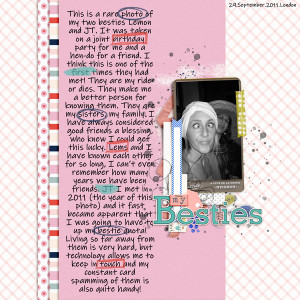 29.September.2011.London
This is a rare photo of
my two besties Lemon
and JT. It was taken
on a joint birthday
party for me and a
hen-do for a friend. I
think this is one of the
first times they had
met! They are my rider
or dies. They make me
a better person for
knowing them. They are
my Sisters, my family. I
have always considered
good friends a blessing,
who knew I could get
this lucky. Lems and I
have known each other
for so long, I can't even
remember how many
years we have been
friends. JT I met in
2011 (the year of this
photo) and it fast,
became apparent that
I was going to have to
up my bestie quota!
Living so far away from
them is very hard, but
technology allows me to
keep in touch and my
constant card
spamming of them is
also quite handy!
my
Besties